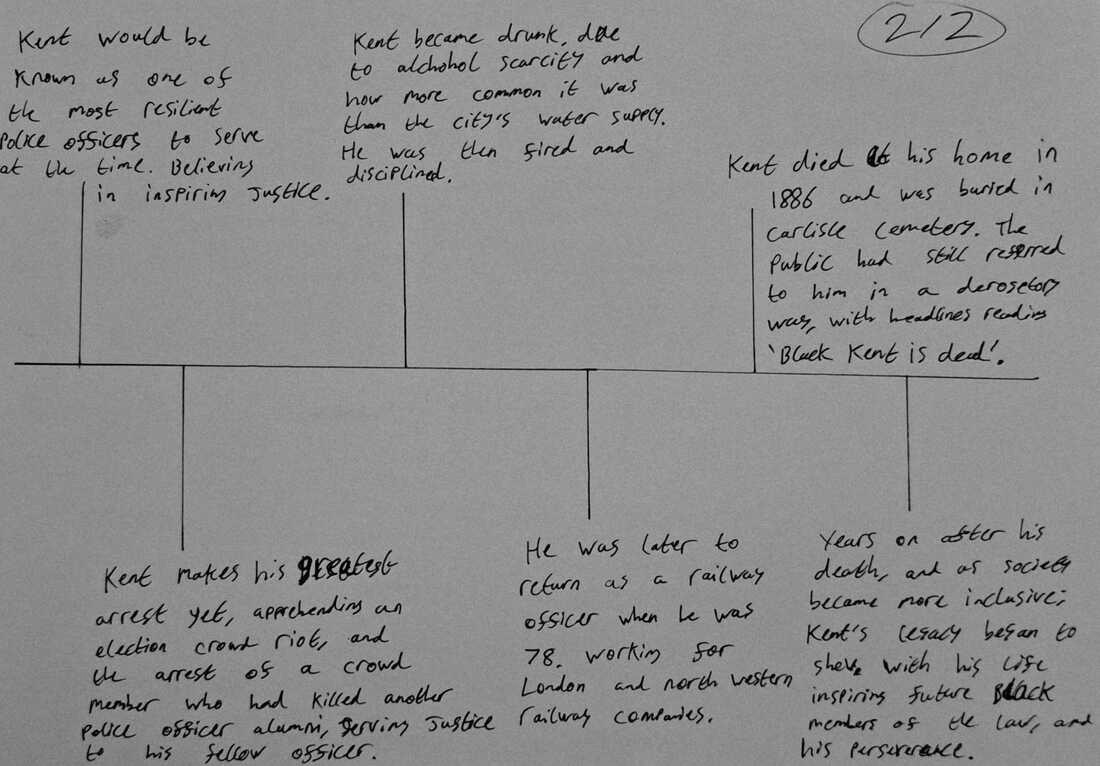 2/2
Kent would be
known as one of
the most resilient
police officers to serve
at the time. Believing
in inspiring justice.
Kent makes his greatest
arrest yet, apprehending an
election crowd riot, and
the arrest of a crowd
member who had killed another
police officer alumni, serving justice
to his fellow officer.
Kent became drunk, due
to alchohol scarcity and
how more common it was
than the city's water supply.
He was then fired and
disciplined.
He was later to
return as a railway
officer when he was
78. working for
London and north western
railway companies.
Kent died at his home in
1886 and was buried in
Carlisle Cemetery. The
public had still referred
to him in a derogetory
way, with headlines reading
'Black Kent is dead'.
Years on after his
death, and as society
became more inclusive;
Kent's legacy began to
show, with his life
inspiring future Black
members of the law, and
his perseverence.